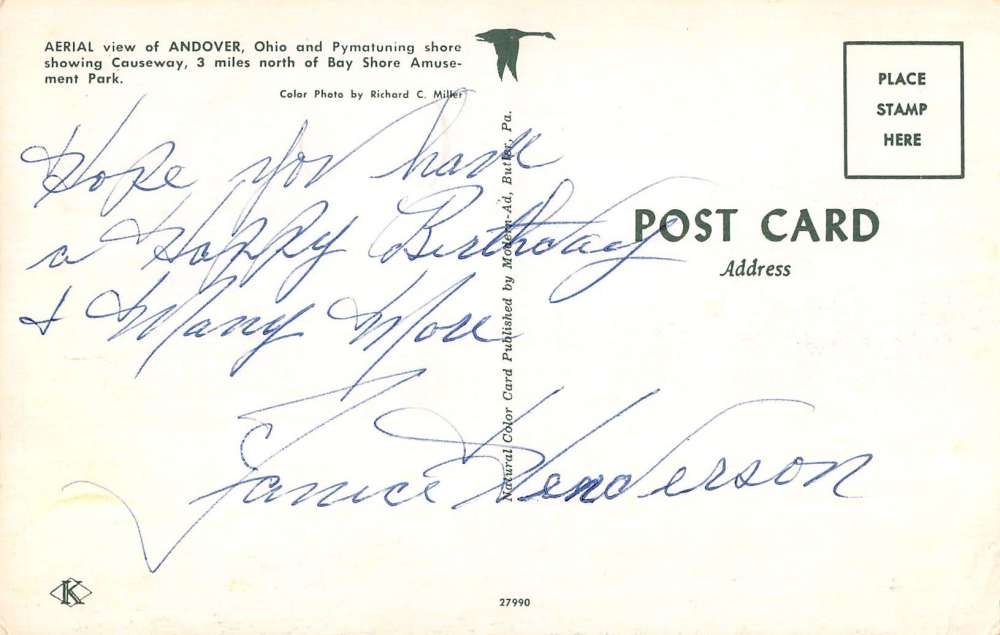 AERIAL view of ANDOVER, Ohio and Pymatuning shore
showing Causeway, 3 miles north of Bay Shore Amuse-
ment Park.
Color Photo by Richard C. Miller
Hope you have
a Happy Birthday
& Many More
Janice Henderson
Natural Color Card Published by Modern-Ad, Butler, Pa.
PLACE
STAMP
HERE
POST CARD
Address
K
27990